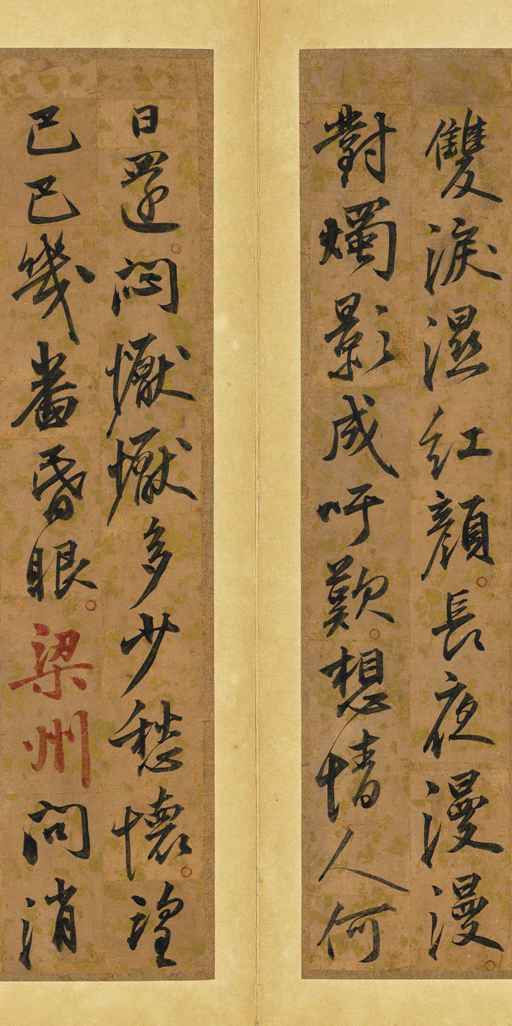 雙淚濕紅顏。長夜漫漫。
對燭影成吁歎。想情人何
日還。悶懨懨多少愁懷。望
巴巴幾番昏眼。梁州問消